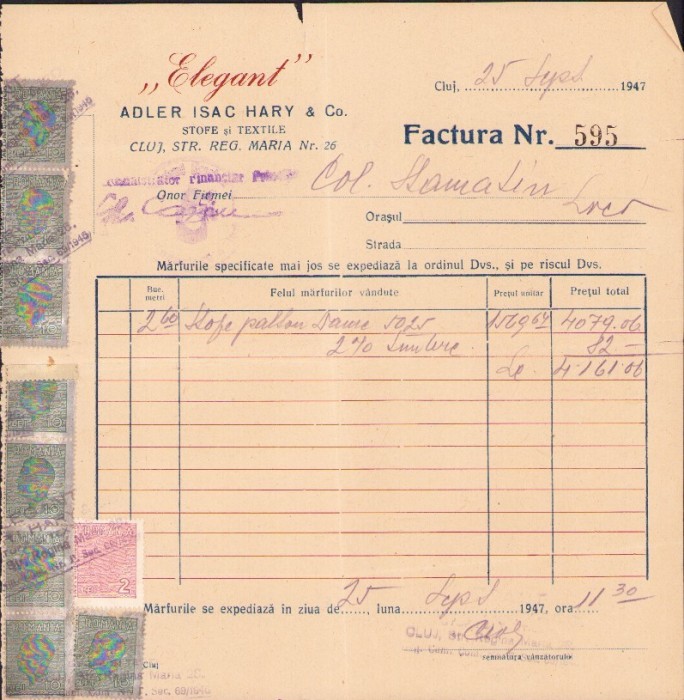 „Elegant”
ADLER ISAC HARY & Co.
STOFE și TEXTILE
CLUJ, STR. REG. MARIA Nr. 26
Cluj, 25 Sept 1947
Factura Nr. 595
Administrator Financiar
Onor Firmei Col. Stamatin
Orașul Loco
Strada
Mărfurile specificate mai jos se expediază la ordinul Dvs., și pe riscul Dvs.
Buc. metri Felul mărfurilor vândute Prețul unitar Prețul total
2 60 Stofe palton Dame 5025 1569 64 4079.06
2% Timbre 82 –
Lei 4161.06
2
Mărfurile se expediază în ziua de 25, luna Sept 1947, ora 11 30
CLUJ, Str. Regina Maria
semnătura vânzătorului
Cluj